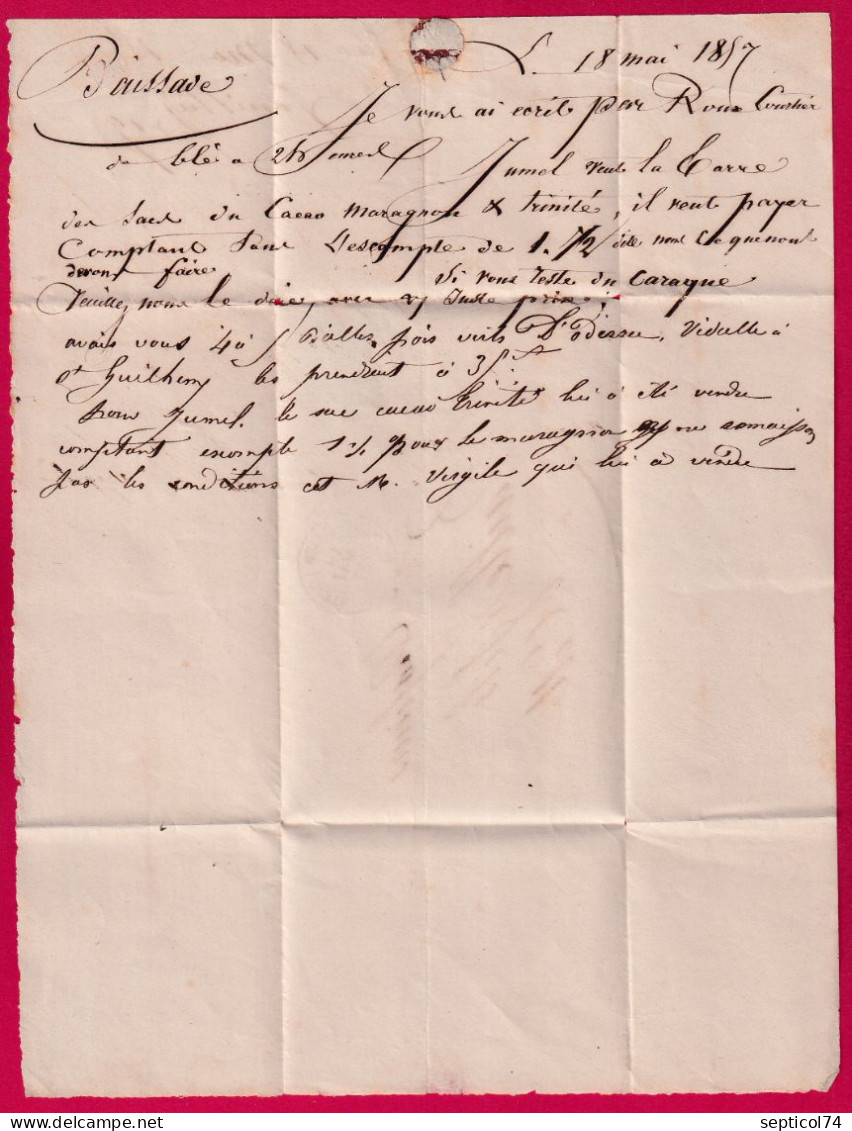 L. 18 mai 1857
Boissade
Je vous ai ecrit par Roux Courtier
de blé a
Jumel veut la Tarre
des sacs du Cacao maragnon & trinité, il veut payer
Comptant sans L'escompte de 1. 1/2 dite nous ce que nous
devons faire
Si vous reste du Caraque
Veuillez nous le dire, avec le Juste prix;
avais vous 4 à 5 Balles pois verts D'odessa, Vidalle à
St Guilhem les prendrait à 35 f
Pour Jumel. le sac cacao trinité lui à été vendu
comptant escompte 1 1/2 pour le maragnon ne connaisson
pas les conditions cet M. Virgile qui lui à vendu
septicol74